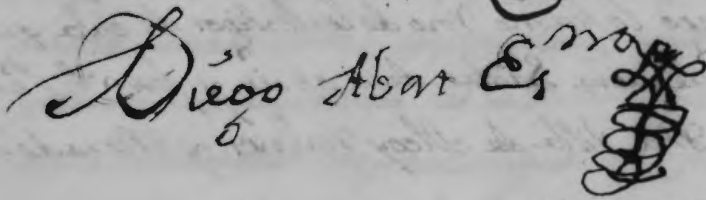 Diego Abat Esno